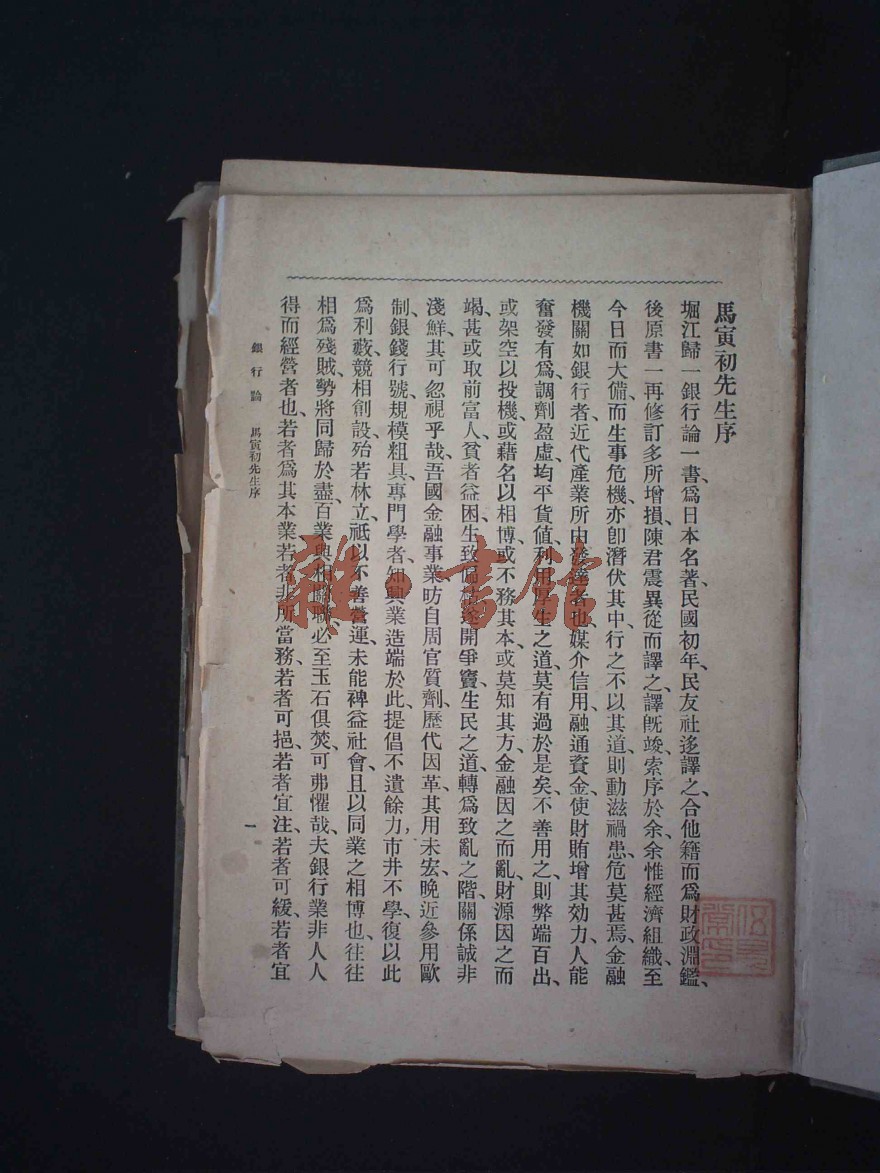 馬寅初先生序
堀江歸一銀行論一書、爲日本名著、民國初年、民友社迻譯之、合他籍而爲財政淵鑑、
後原書一再修訂、多所增損、陳君震異從而譯之、譯旣竣、索序於余、余惟經濟組織、至
今日而大備、而生事危機、亦卽潛伏其中、行之不以其道、則動滋禍患、危莫甚焉、金融
機關如銀行者、近代產業所由發達者也、媒介信用、融通資金、使財賄增其効力、人能
奮發有爲、調劑盈虛、均平貨値、利用厚生之道、莫有過於是矣、不善用之、則弊端百出、
或架空以投機、或藉名以相博、或不務其本、或莫知其方、金融因之而亂、財源因之而
竭、甚或取前富人、貧者益困、生致
開爭竇、生民之道、轉爲致亂之階、關係誠非
淺鮮、其可忽視乎哉、吾國金融事業、昉自周官質劑、歷代因革、其用未宏、晚近參用歐
制、銀錢行號、規模粗具、專門學者、知興業造端於此、提倡不遺餘力、市井不學、復以此
爲利藪、競相創設、殆若林立、祇以不善營運、未能裨益社會、且以同業之相博也、往往
相爲殘賊、勢將同歸於盡、百業與相關聯、必至玉石俱焚、可弗懼哉、夫銀行業非人人
得而經營者也、若者爲其本業、若者非所當務、若者可挹、若者宜注、若者可緩、若者宜
銀行論 馬寅初先生序
一
雜·書館